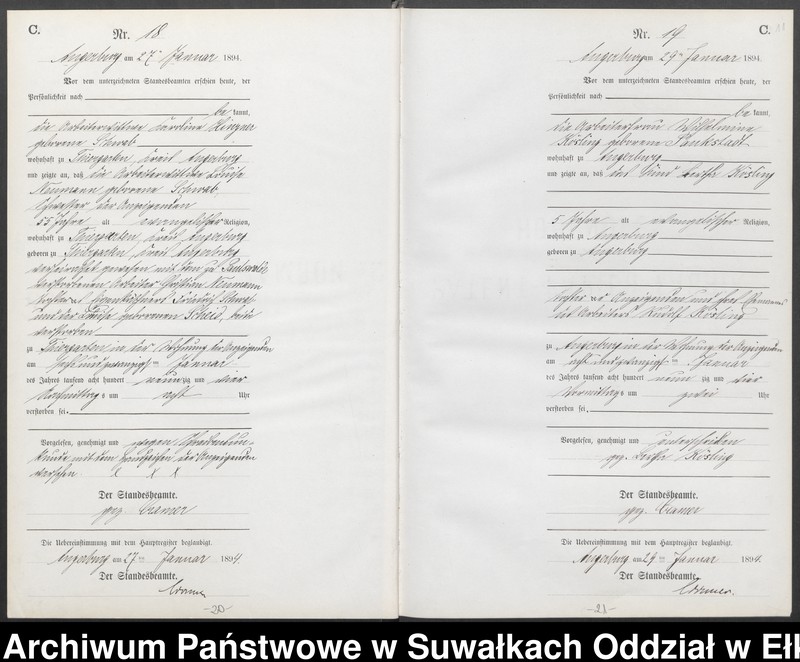 C.
Nr. 18
Angerburg am 27ten Januar 1894.
Vor dem unterzeichneten Standesbeamten erschien heute, der
Persönlichkeit nach
be kannt,
die Arbeiterwittwe Karoline
geborene Schwab
wohnhaft zu Thiergarten Kreis Angerburg
und zeigte an, daß die Arbeiterwittwe Louise
Neumann geborene Schwab,
Schwester der Anzeigenden
55 Jahre alt evangelischer Religion,
wohnhaft zu Thiergarten Kreis Angerburg
geboren zu Thiergarten Kreis Angerburg
verheirathet gewesen mit dem zu
verstorbenen Arbeiter Christian Neumann
Tochter des Friedrich Schwab
und der Louise geborenen Scheid, beide
verstorben
zu Thiergarten in der Wohnung der Anzeigenden
am sechsundzwanzigsten Januar
des Jahres tausend acht hundert neunzig und vier
Nachmittags um acht Uhr
verstorben sei.
Vorgelesen, genehmigt und wegen Schreibensun-
kunde mit dem Handzeichen der Anzeigenden
versehen x x x
Der Standesbeamte.
gez. Cramer
Die Uebereinstimmung mit dem Hauptregister beglaubigt.
Angerburg am 27ten Januar 1894.
Der Standesbeamte.
Cramer
-20-
C.
Nr. 19
Angerburg am 29ten Januar 1894.
Vor dem unterzeichneten Standesbeamten erschien heute, der
Persönlichkeit nach
be kannt,
die Arbeiterfrau Wilhelmine
Kösling geborene
wohnhaft zu Angerburg
und zeigte an, daß das Kind Kösling
5 Jahre alt evangelischer Religion,
wohnhaft zu Angerburg
geboren zu Angerburg
Tochter der Anzeigenden und ihres Ehemannes
des Arbeiters Rudolf Kösling
zu Angerburg in der Wohnung der Anzeigenden
am achtundzwanzigsten Januar
des Jahres tausend acht hundert neun zig und vier
Vormittags um zwei Uhr
verstorben sei.
Vorgelesen, genehmigt und unterschrieben
gez. Kösling
Der Standesbeamte.
gez. Cramer
Die Uebereinstimmung mit dem Hauptregister beglaubigt.
Angerburg am 29ten Januar 1894.
Der Standesbeamte.
Cramer.
-21-
Archiwum Państwowe w Suwałkach Oddział w Eł